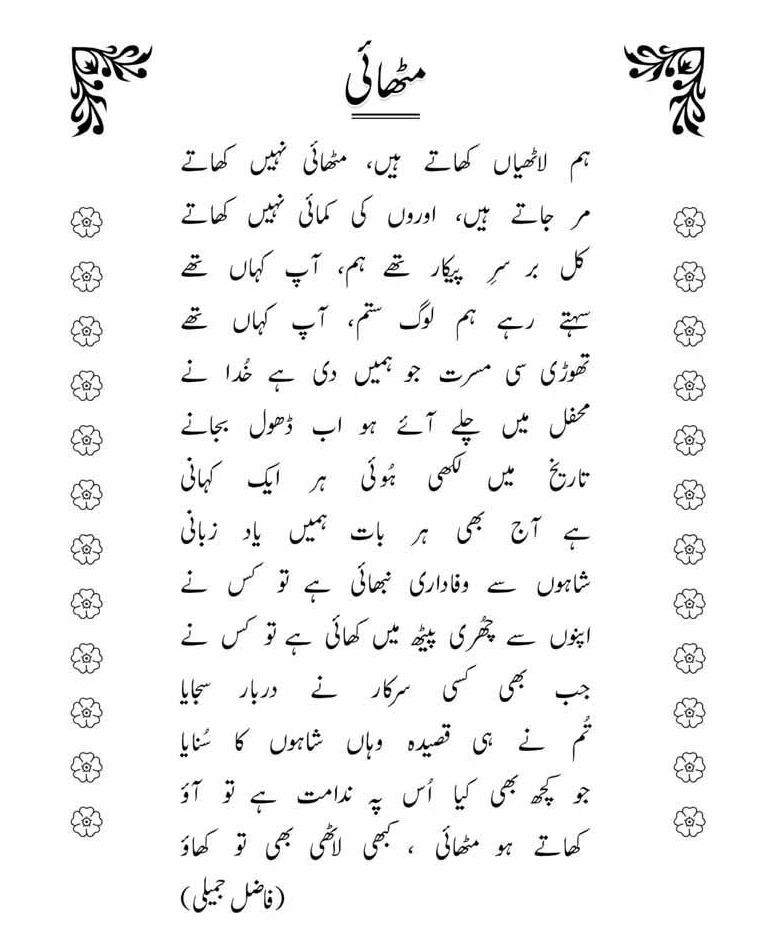 مٹھائی
ہم لاٹھیاں کھاتے ہیں، مٹھائی نہیں کھاتے
مر جاتے ہیں، اوروں کی کمائی نہیں کھاتے
کل بر سرِ پیکار تھے ہم، آپ کہاں تھے
سہتے رہے ہم لوگ ستم، آپ کہاں تھے
تھوڑی سی مسرت جو ہمیں دی ہے خُدا نے
محفل میں چلے آئے ہو اب ڈھول بجانے
تاریخ میں لکھی ہُوئی ہر ایک کہانی
ہے آج بھی ہر بات ہمیں یاد زبانی
شاہوں سے وفاداری نبھائی ہے تو کس نے
اپنوں سے چھُری پیٹھ میں کھائی ہے تو کس نے
جب بھی کسی سرکار نے دربار سجایا
تُم نے ہی قصیدہ وہاں شاہوں کا سُنایا
جو کچھ بھی کیا اُس پہ ندامت ہے تو آؤ
کھاتے ہو مٹھائی ، کبھی لاٹھی بھی تو کھاؤ
(فاضل جمیلی)